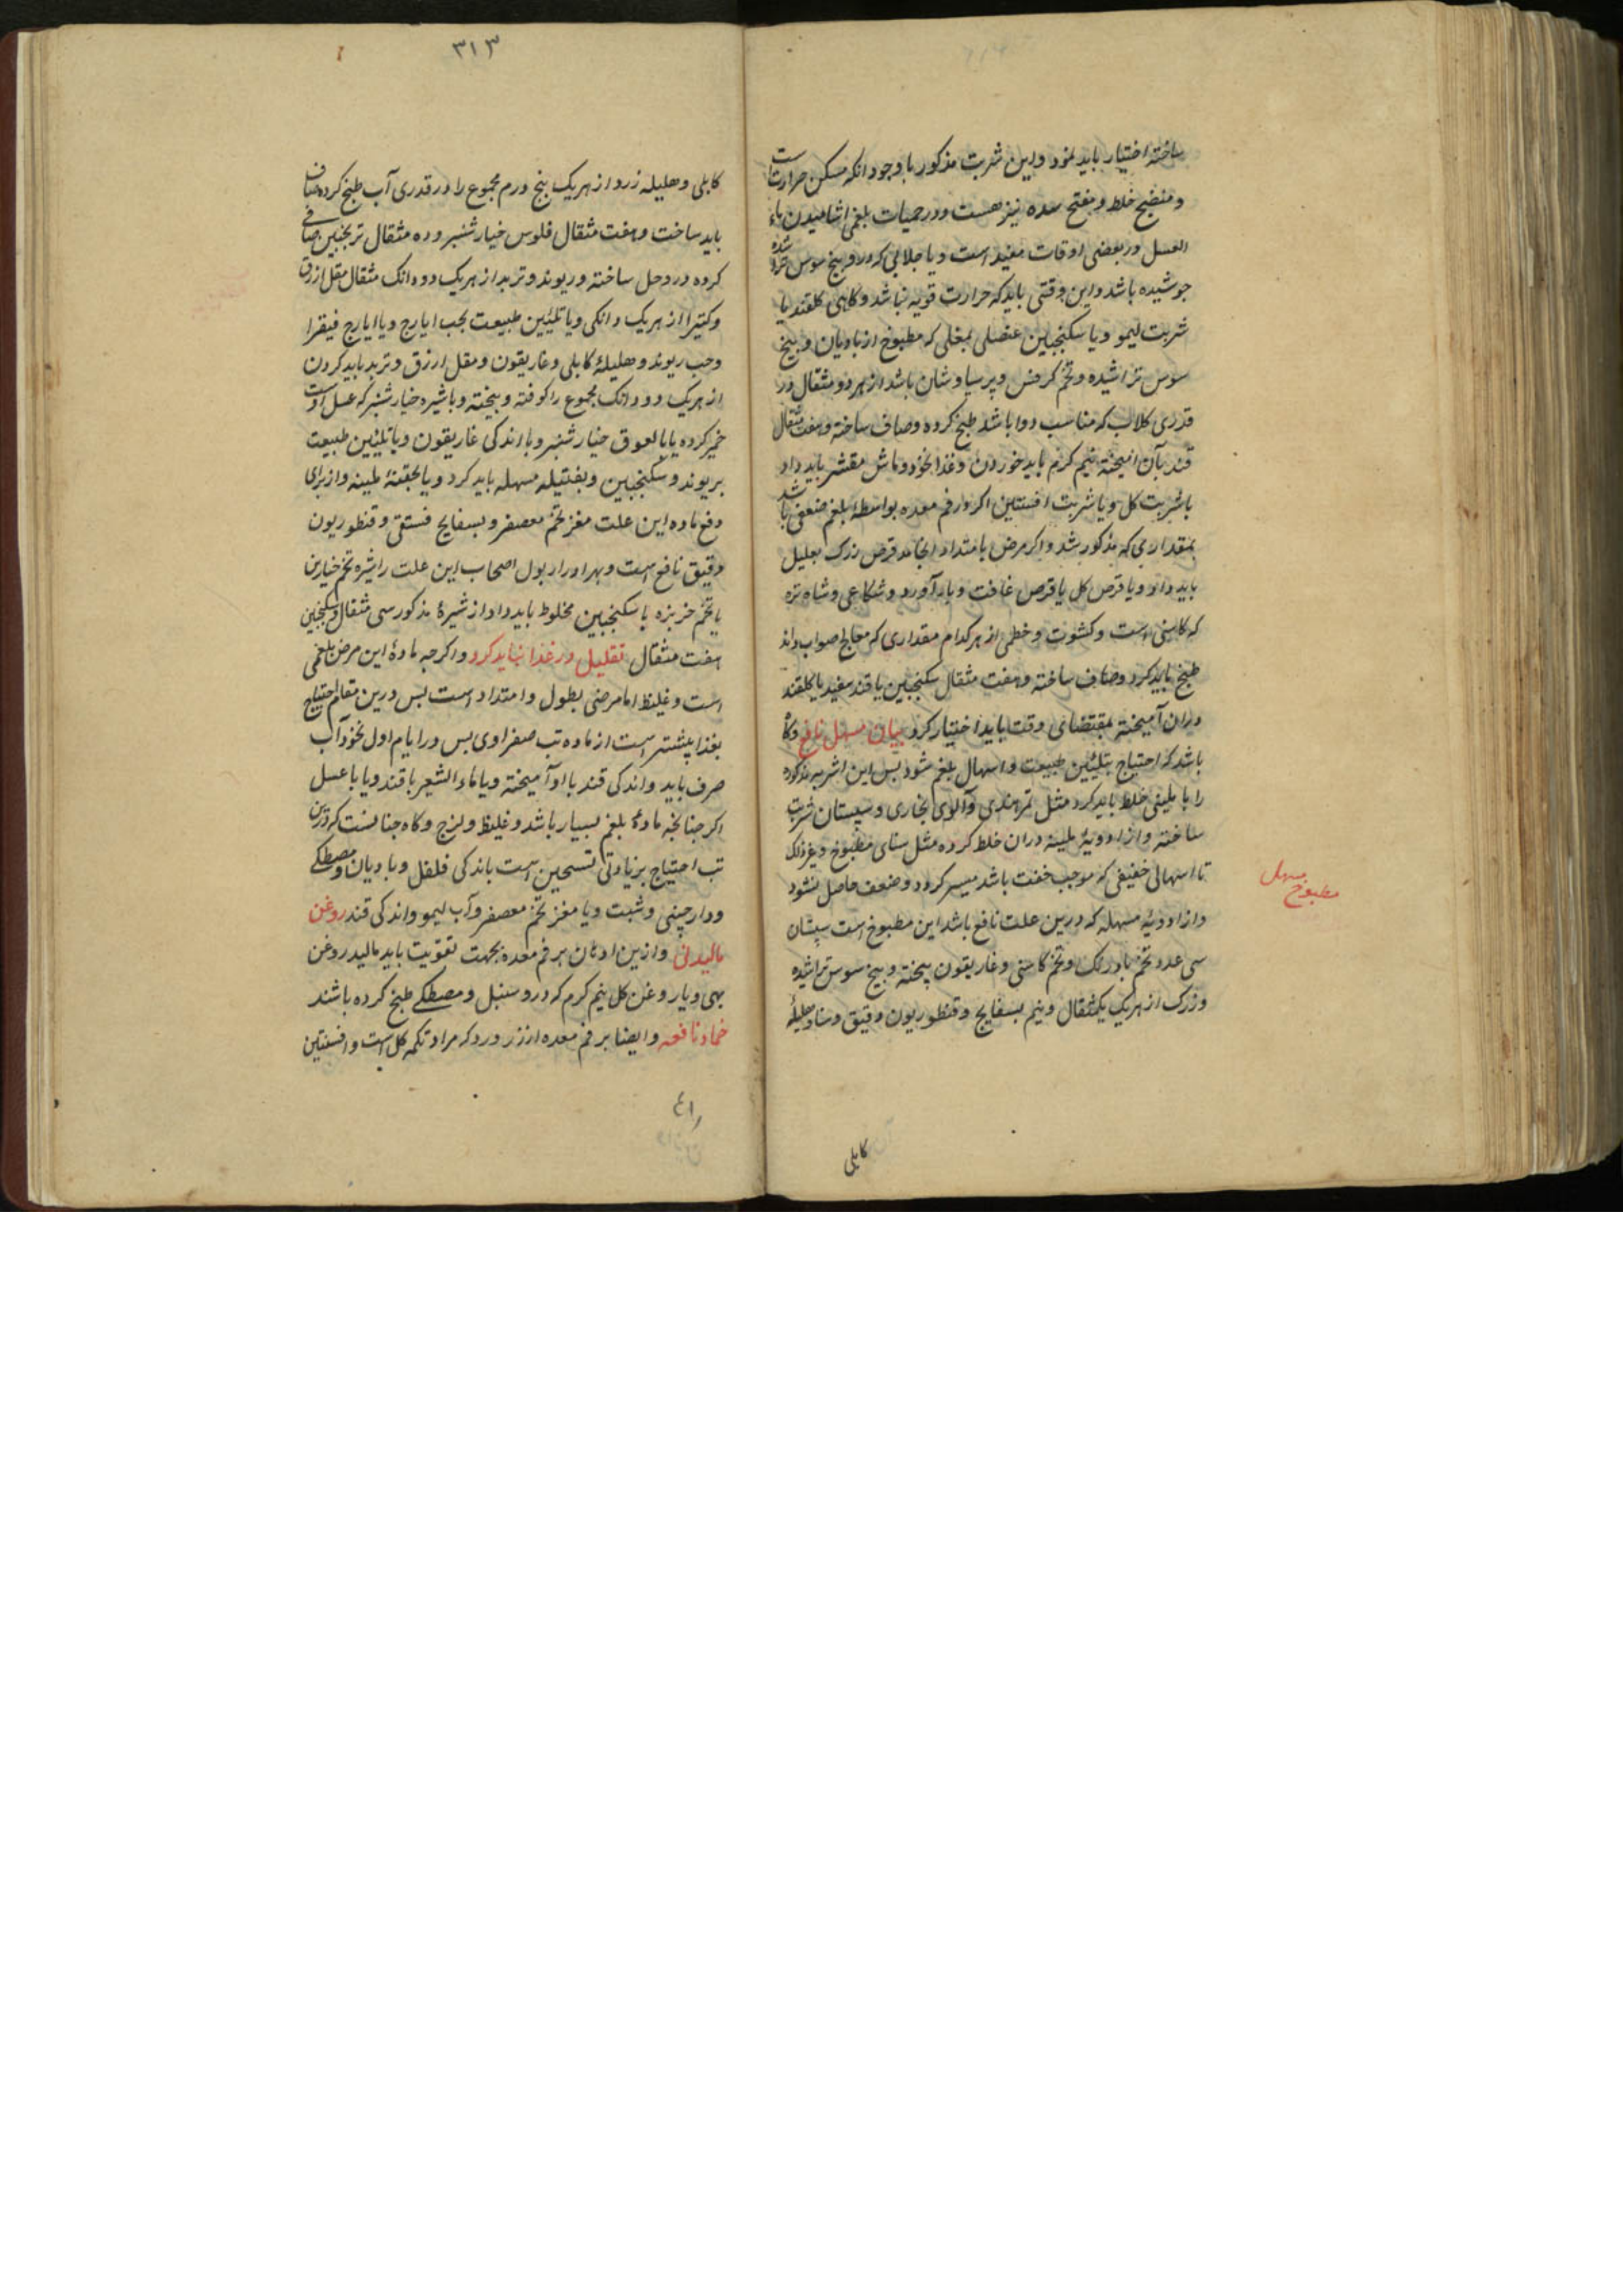 ساخته اختیار باید نمود و این شربت مذکور با وجود انکه مسکن حرارتست
و منضج خلط و مفتح سده نیز هست و در حمیات بلغمی اشامیدن ماء
العسل در بعضی اوقات مفید است و یا جلابی که درو بیخ سوس خرد شده
جوشیده باشد و این وقتی باید که حرارت قویه نباشد و کاهی کلقند با
شربت لیمو و یا سکنجبین عنصلی بمغلی که مطبوخ از بادیان و بیخ
سوس تراشیده و تخم کرفس و پرسیاوشان باشد از هر دو مثقال در
قدری کلاب که مناسب دوا باشد طبخ کرده و صاف ساخته و هفت مثقال
قند بآن امیخته نیم کرم باید خوردن و غذا نخود و ماش مقشر باید داد
با شربت کل و یا شربت افسنتین اکر در فم معده بواسطهٔ بلغم ضعفی باشد
بمقداری که مذکور شد و اکر مرض بامتداد انجامد قرص زرک بعلیل
باید داد و یا قرص کل یا قرص غافت و بادآورد و شکاعی و شاه تره
که کاسنی است و کشوت و خطمی از هر کدام مقداری که معالج صواب داند
طبخ باید کرد و صاف ساخته و هفت مثقال سکنجبین یا قند سفید یا کلقند
دران آمیخته بمقتضای وقت باید اختیار کرد بیان مسهل نافع و کاه
باشد که احتیاج بتلئین طبیعت و اسهال بلغم شود بس این اشربه مذکوره
را با ملینی خلط باید کرد مثل تمر هندی و آلوی بخاری و سپستان شربت
ساخته و از ادویهٔ ملینه دران خلط کرده مثل سنای مطبوخ و غیر ذلک
تا اسهالی خفیفی که موجب خفت باشد میسر کردد و ضعف حاصل نشود
و از ادویهٔ مسهله که درین علت نافع باشد این مطبوخ است سپستان
سی عدد تخم بادرنک و تخم کاسنی و غاریقون پیخته و بیخ سوس تراشیده
و زرک از هریک یکمثقال و نیم بسفایج و قنطوریون دقیق و سنا و هلیلهٔ
مطبوخ مسهل
کابلی
۳۱۳
کابلی و هلیله زرد از هریک پنج درم مجموع را در قدری آب طبخ کرده صاف
باید ساخت و هفت مثقال فلوس خیارشنبر و ده مثقال ترنجبین صافی
کرده درو حل ساخته و ریوند و تربد از هریک دو دانک مثقال مقل ازرق
و کتیرا از هریک دانکی و یا تلئین طبیعت بحب ایارج و یا ایارج فیقرا
و حب ریوند و هلیلهٔ کابلی و غاریقون و مقل ارزق و تربد باید کردن
از هریک دو دانک مجموع را کوفته و بیخته و با شیره خیارشنبر که عسل اوست
خمیر کرده یا بالعوق خیارشنبر و با اندکی غاریقون و یا تلئین طبیعت
بریوند و سکنجبین و بفتیله مسهله باید کرد و یا بحقنهٔ ملینه و از برای
دفع ماده این علت مغز تخم معصفر و بسفایج فستقی و قنطوریون
دقیق نافع است و بهر ادرار بول اصحاب این علت را شیره تخم خیارین
یا تخم خربزه با سکنجبین مخلوط باید داد از شیرهٔ مذکور سی مثقال و سکنجبین
هفت مثقال تقلیل در غذا نباید کرد و اکرجه مادهٔ این مرض بلغمی
است و غلیظ اما مرضی بطول و امتداد است بس درین مقام احتیاج
بغذا پیشتر است از ماده تب صفراوی بس در ایام اول نخودآب
صرف باید و اندکی قند با او آمیخته و یا ماء الشعیر با قند و یا با عسل
اکر جنانجه مادهٔ بلغم بسیار باشد و غلیظ و لزج و کاه جنانست که درین
تب احتیاج بزیادتی تسخین است باندکی فلفل و بادیان و مصطکی
و دارچینی و شبت و یا مغز تخم معصفر و آب لیمو و اندکی قند روغن
مالیدنی و ازین ادهان بر فم معده بجهت تقویت باید مالید روغن
بهی و یا روغن کل نیم کرم که درو سنبل و مصطکی طبخ کرده باشند
ضماد نافعه و ایضا بر فم معده از زر ورد که مراد تکمه کل است و افسنتین